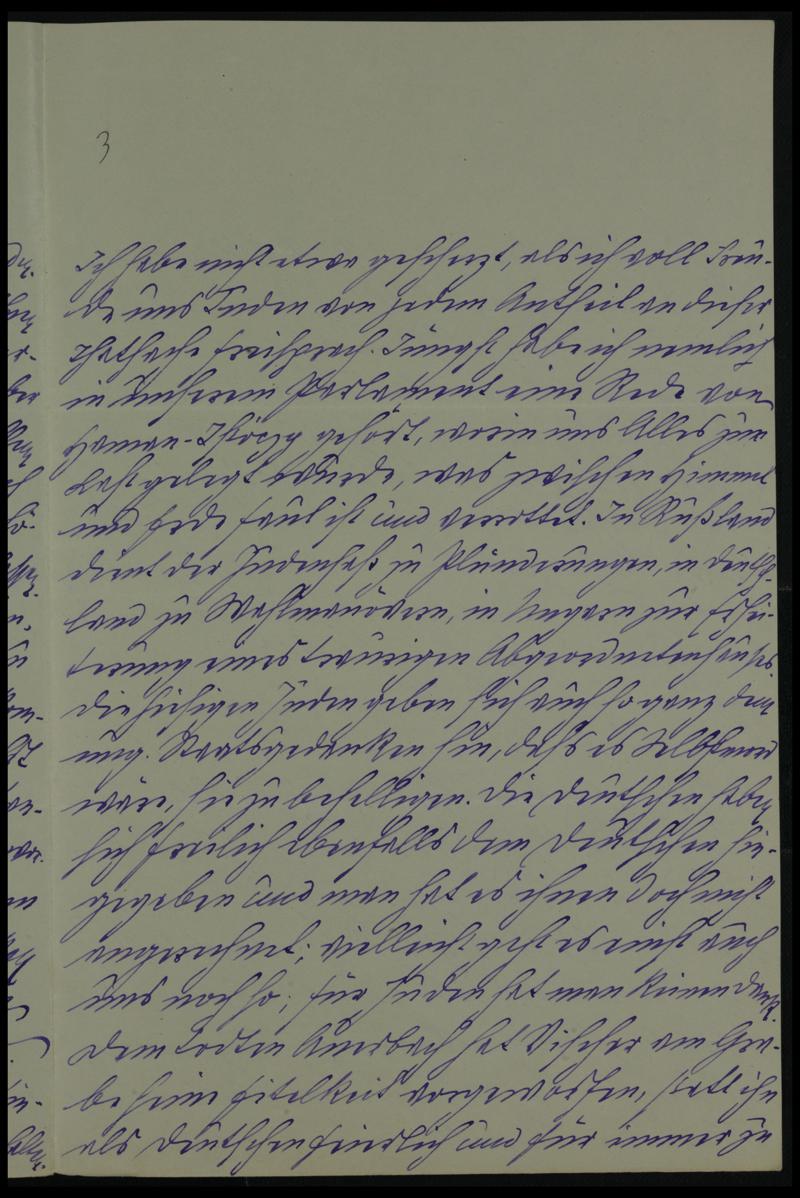 3
Ich habe nicht etwa gescherzt, als ich voll Freu-
de uns Juden von jedem Antheil an dieser
Thatsache freisprach. Jüngst habe ich nemlich
in unserem Parlament eine Rede von
Haman-Istóczy gehört, worin uns Alles zur
Last gelegt wurde, was zwischen Himmel
und Erde faul ist und verrottet. In Rußland
dient der Judenhaß zu Plünderungen, in Deutsch-
land zu Wahlmanövern, in Ungarn zur Erhei-
terung eines traurigen Abgeordnetenhauses.
Die hiesigen Juden geben sich auch so ganz dem
ung. Staatsgedanken hin, daß es Selbstmord
wäre, sie zu behelligen. Die Deutschen haben
sich freilich ebenfalls dem Deutschen hin-
gegeben und man hat es ihnen doch nicht
angerechnet; vielleicht geht es einst auch
uns noch so; für Juden hat man keinen Dank.
Dem todten Auerbach hat Vischer am Gra-
be seine Eitelkeit vorgeworfen, statt ihn
als Deutschen feierlich und für immer zu